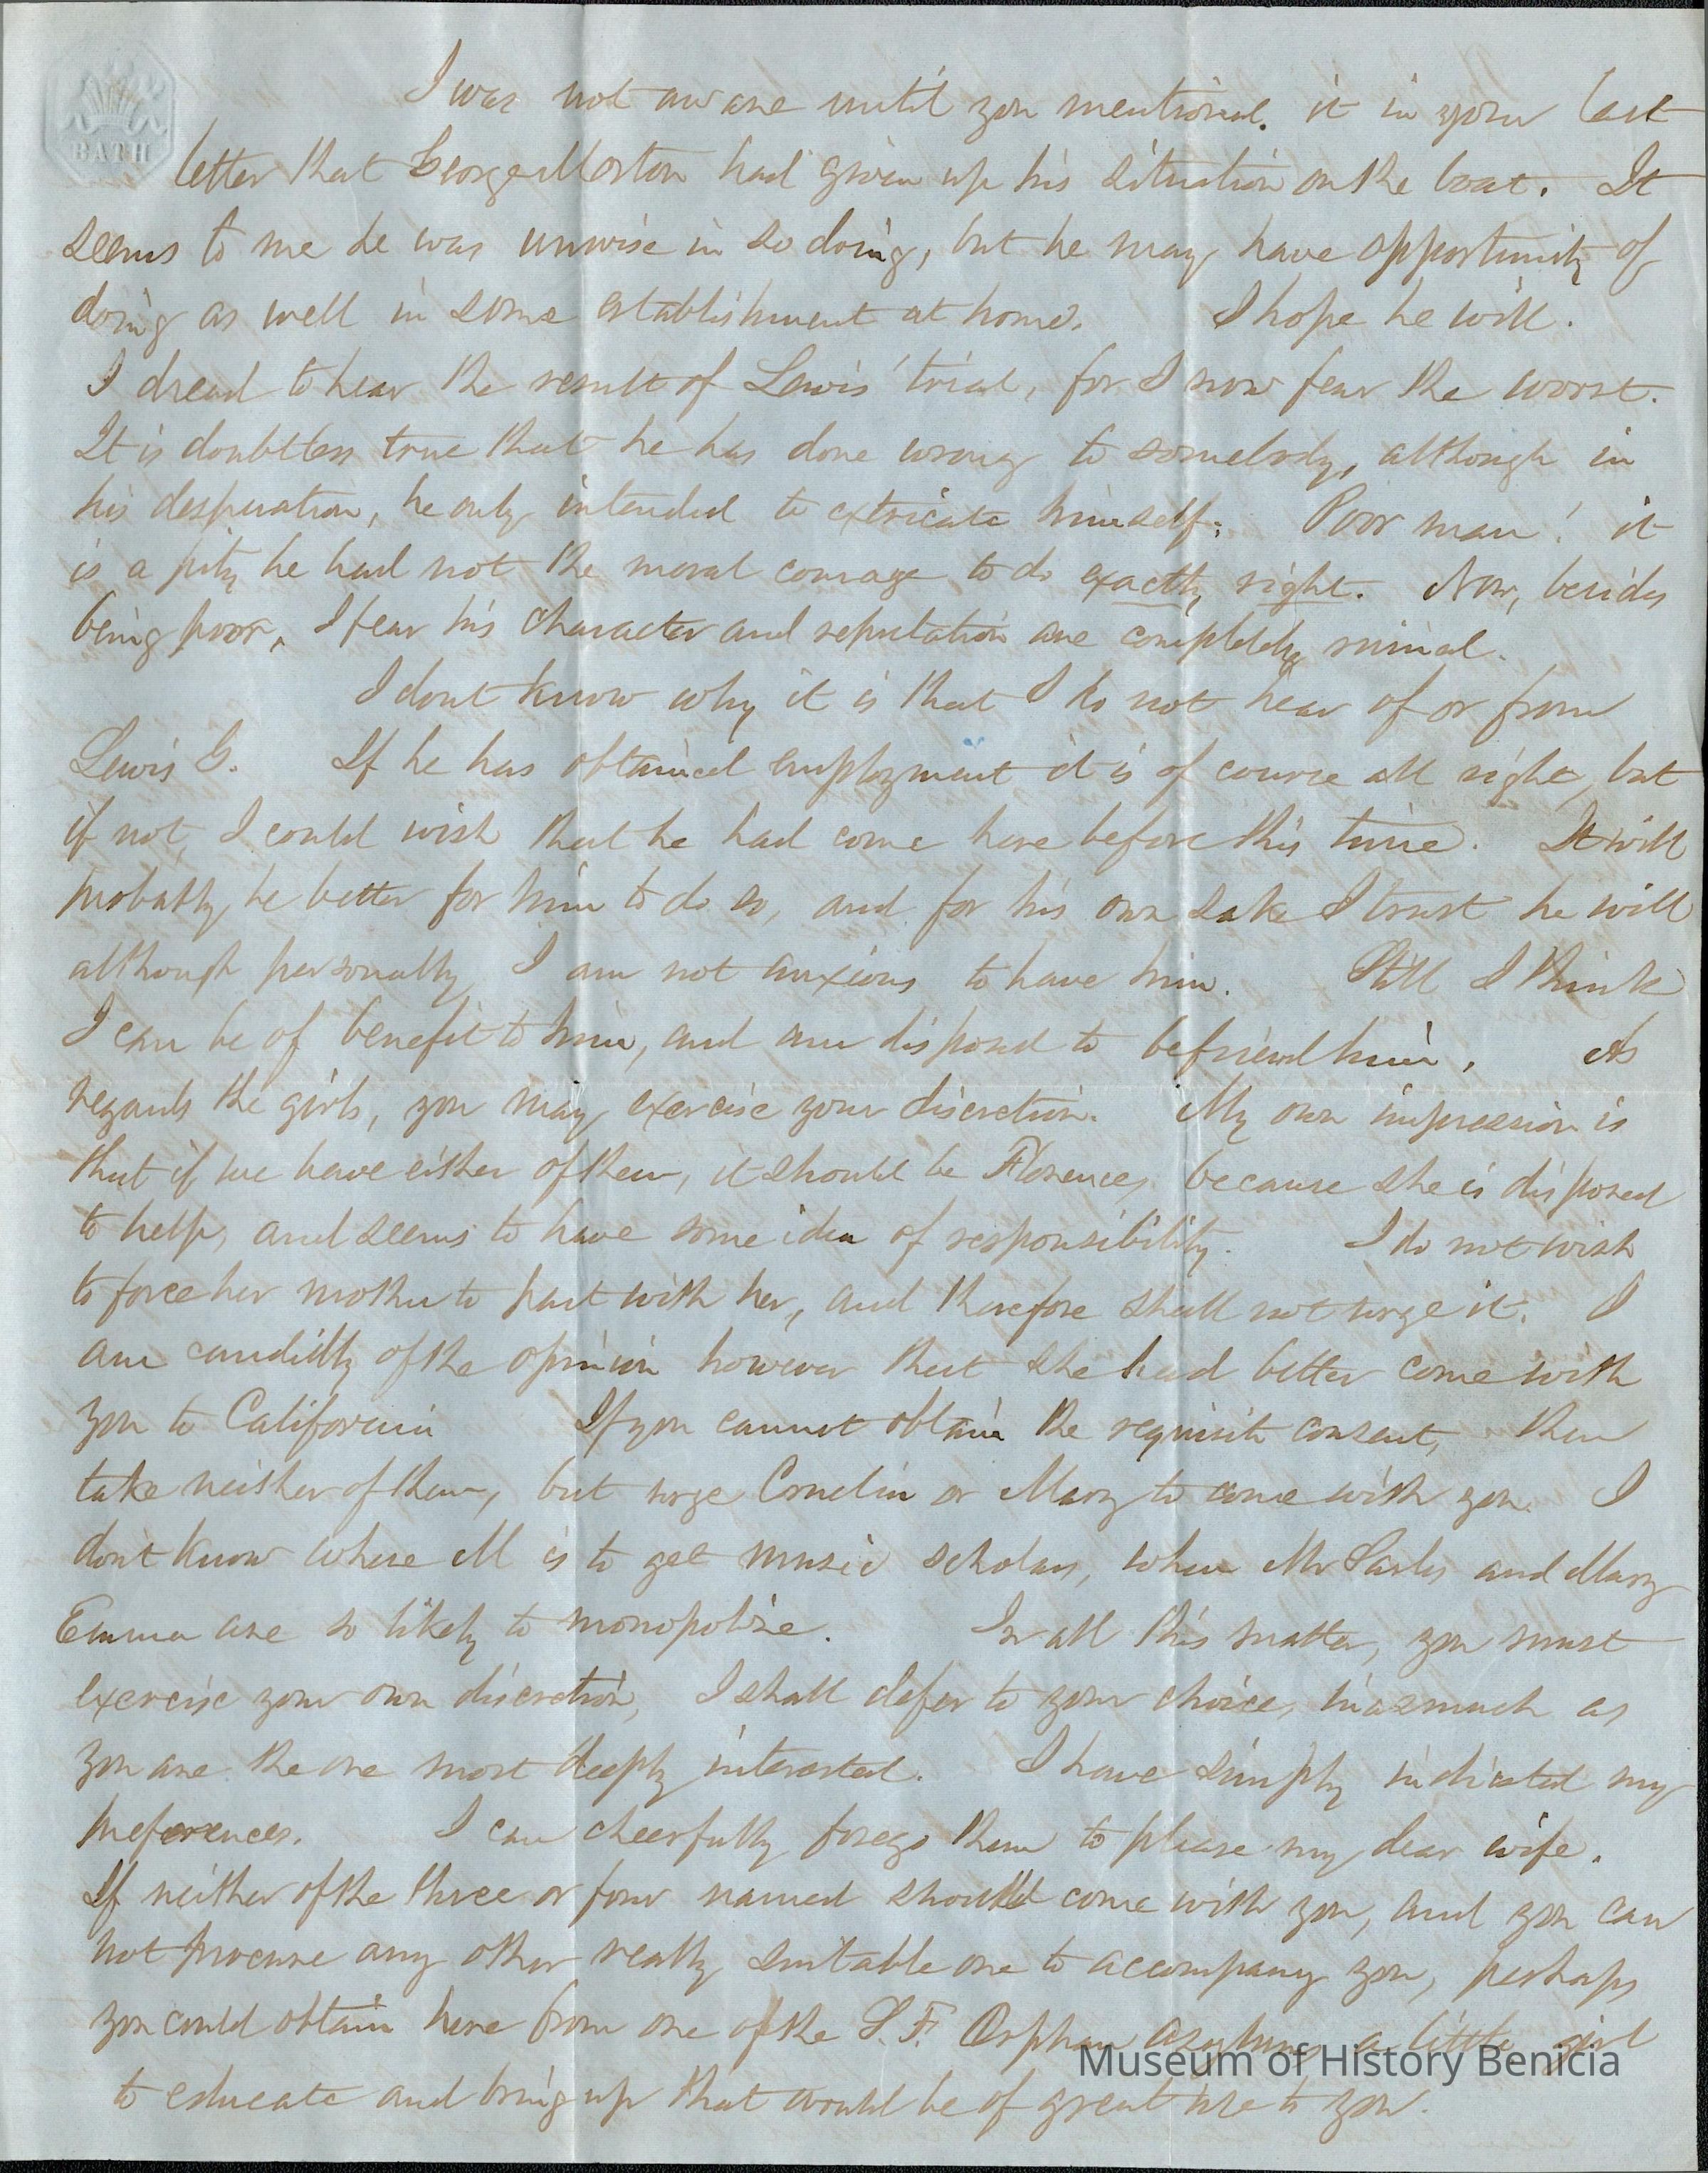 BATH
I was not aware until you mentioned it in your last
letter that George Morton had given up his situation on the boat. It
seems to me he was unwise in so doing, but he may have opportunity of
doing as well in some establishment at home. I hope he will.
I dread to hear the result of Lewis' trial, for I now fear the worst.
It is doubtless true that he has done wrong to somebody, although in
his desperation, he only intended to extricate himself. Poor man! it
is a pity he had not the moral courage to do exactly right. Now, besides
being poor, I fear his character and reputation are completely ruined.
I dont know why it is that I do not hear of or from
Lewis G. If he has obtained employment it is of course all right, but
if not, I could wish that he had come here before this time. It will
probably be better for him to do so, and for his own sake I trust he will
although personally I am not anxious to have him. Still I think
I can be of benefit to him, and am disposed to befriend him. As
regards the girls, you may exercise your discretion. My own impression is
that if we have either of them, it should be Florence, because she is disposed
to help, and seems to have some idea of responsibility. I do not wish
to force her mother to part with her, and therefore shall not urge it. I
am candidly of the opinion however that she had better come with
you to California If you cannot obtain the requisite consent, then
take neither of them, but urge Cornelia or Mary to come with you. I
dont know where M is to get music scholars, when Mr and Mary
Emma are so likely to monopolise. In all this matter, you must
exercise your own discretion, I shall defer to your choice, inasmuch as
you are the one most deeply interested. I have simply indicated my
preferences. I can cheerfully forego them to please my dear wife.
If neither of the three or four named should come with you, and you can
not procure any other really suitable one to accompany you, perhaps
you could obtain here from one of the S. F. Orphan asylums a little girl
to educate and bring up that would be of great use to you.
Museum of History Benicia